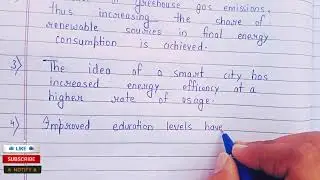 of greenhouse gas emissions.
thus increasing the share of
renewable sources in final energy
consumption is achieved.
3) The idea of a smart city has
increased energy efficacy at a
higher rate of usage.
4) Improved education levels have
LIKE
SUBSCRIBE
NOTIFY